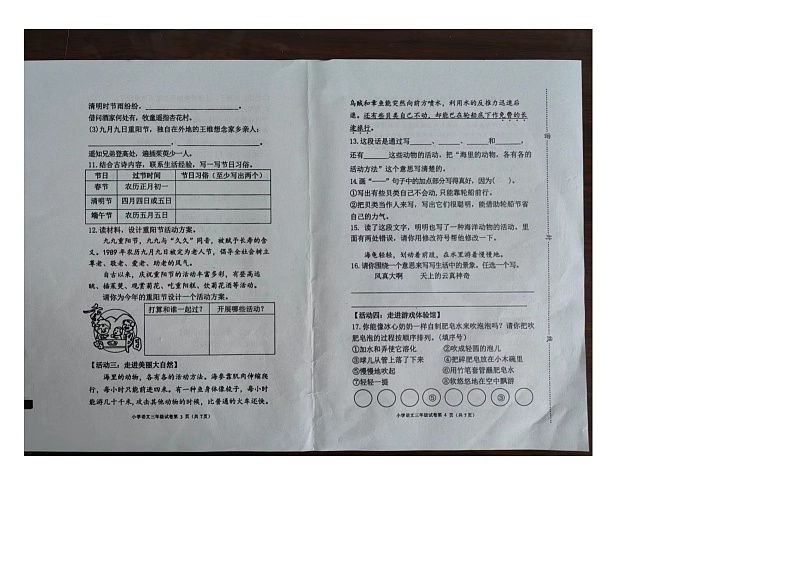 清明时节雨纷纷，____________________。
借问酒家何处有，牧童遥指杏花村。
(3)九月九日重阳节，独自在外地的王维想念家乡亲人：
____________________，____________________。
遥知兄弟登高处，遍插茱萸少一人。
11. 结合古诗内容，联系生活经验，写一写节日习俗。
节日 过节时间 节日习俗（至少写出两个）
春节 农历正月初一
清明节 四月四日或五日
端午节 农历五月五日
12. 读材料，设计重阳节活动方案。
九九重阳节，九九与“久久”同音，被赋予长寿的含
义。1989年农历九月九日被定为老人节，倡导全社会树立
尊老、敬老、爱老、助老的风气。
自古以来，庆祝重阳节的活动丰富多彩，有登高远
眺、插茱萸、观赏菊花、吃重阳糕、饮菊花酒等活动。
请你为今年的重阳节设计一个活动方案。
打算和谁一起过？ 开展哪些活动？
【活动三：走进美丽大自然】
海里的动物，各有各的活动方法。海参靠肌肉伸缩爬
行，每小时只能前进四米。有一种鱼身体像梭子，每小时
能游几十千米，攻击其他动物的时候，比普通的火车还快。
小学语文三年级试卷第 3 页（共 7 页）
乌贼和章鱼能突然向前方喷水，利用水的反推力迅速后
退。还有些贝类自己不动，却能巴在轮船底下作免费的长
途旅行。
13. 这段话是通过写_____、_____、_____和_____，
还有_____这些动物的活动，把“海里的动物，各有各的
活动方法”这个意思写清楚的。
14. 画“——”句子中的加点部分写得真好，因为（ ）。
①写出有些贝类自己不会动，只能靠轮船前行。
②把贝类当作人来写，写出它们很聪明，能借助轮船节省
自己的力气。
15. 读了这段文字，明明也写了一种海洋动物的活动。里
面有两处错误，请你用修改符号帮他修改一下。
海龟轻轻，划动着前肢，在水里游着慢慢地。
16. 请你围绕一个意思来写写生活中的景象。任选一个写。
风真大啊 天上的云真神奇
【活动四：走进游戏体验馆】
17. 你能像冰心奶奶一样自制肥皂水来吹泡泡吗？请你把吹
肥皂泡的过程按顺序排列。（填序号）
①加水和弄使它溶化 ②吹成轻圆的泡儿
③球儿从管上落了下来 ④把碎肥皂放在小木碗里
⑤慢慢地吹起 ⑥用竹笔套管蘸肥皂水
⑦轻轻一提 ⑧软悠悠地在空中飘游
⑤ ③
小学语文三年级试卷第 4 页（共 7 页）
密
封
线